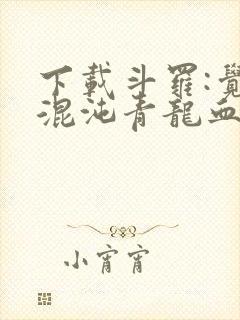 下載斗羅:覺
混沌青龍血
小宵宵